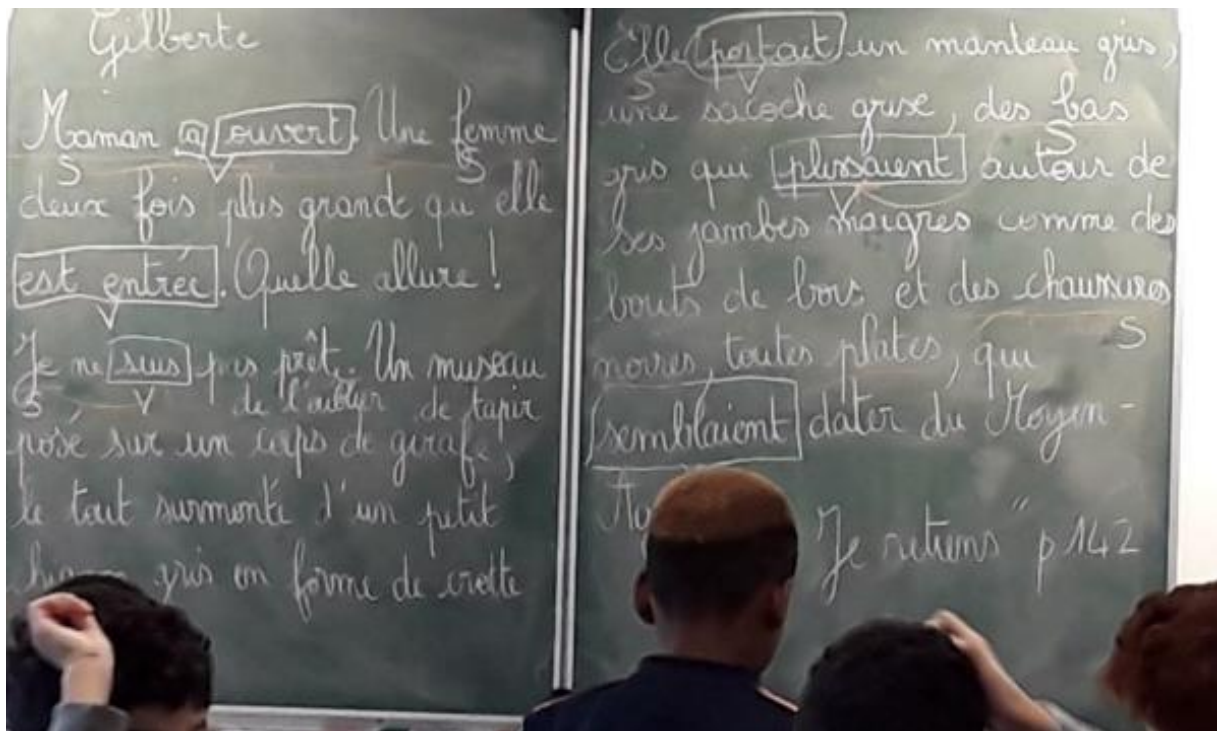 Gilberte
Maman a ouvert. Une femme
deux fois plus grande qu'elle
est entrée. Quelle allure !
Je ne suis pas prêt. Un museau
de l'oublier de tapir
posé sur un corps de girafe,
le tout surmonté d'un petit
gris en forme de crotte
Elle portait un manteau gris,
une sacoche grise, des bas
gris qui plissaient autour de
ses jambes maigres comme des
bouts de bois et des chaussures
noires, toutes plates, qui
semblaient dater du Moyen-
Je retiens" p 142